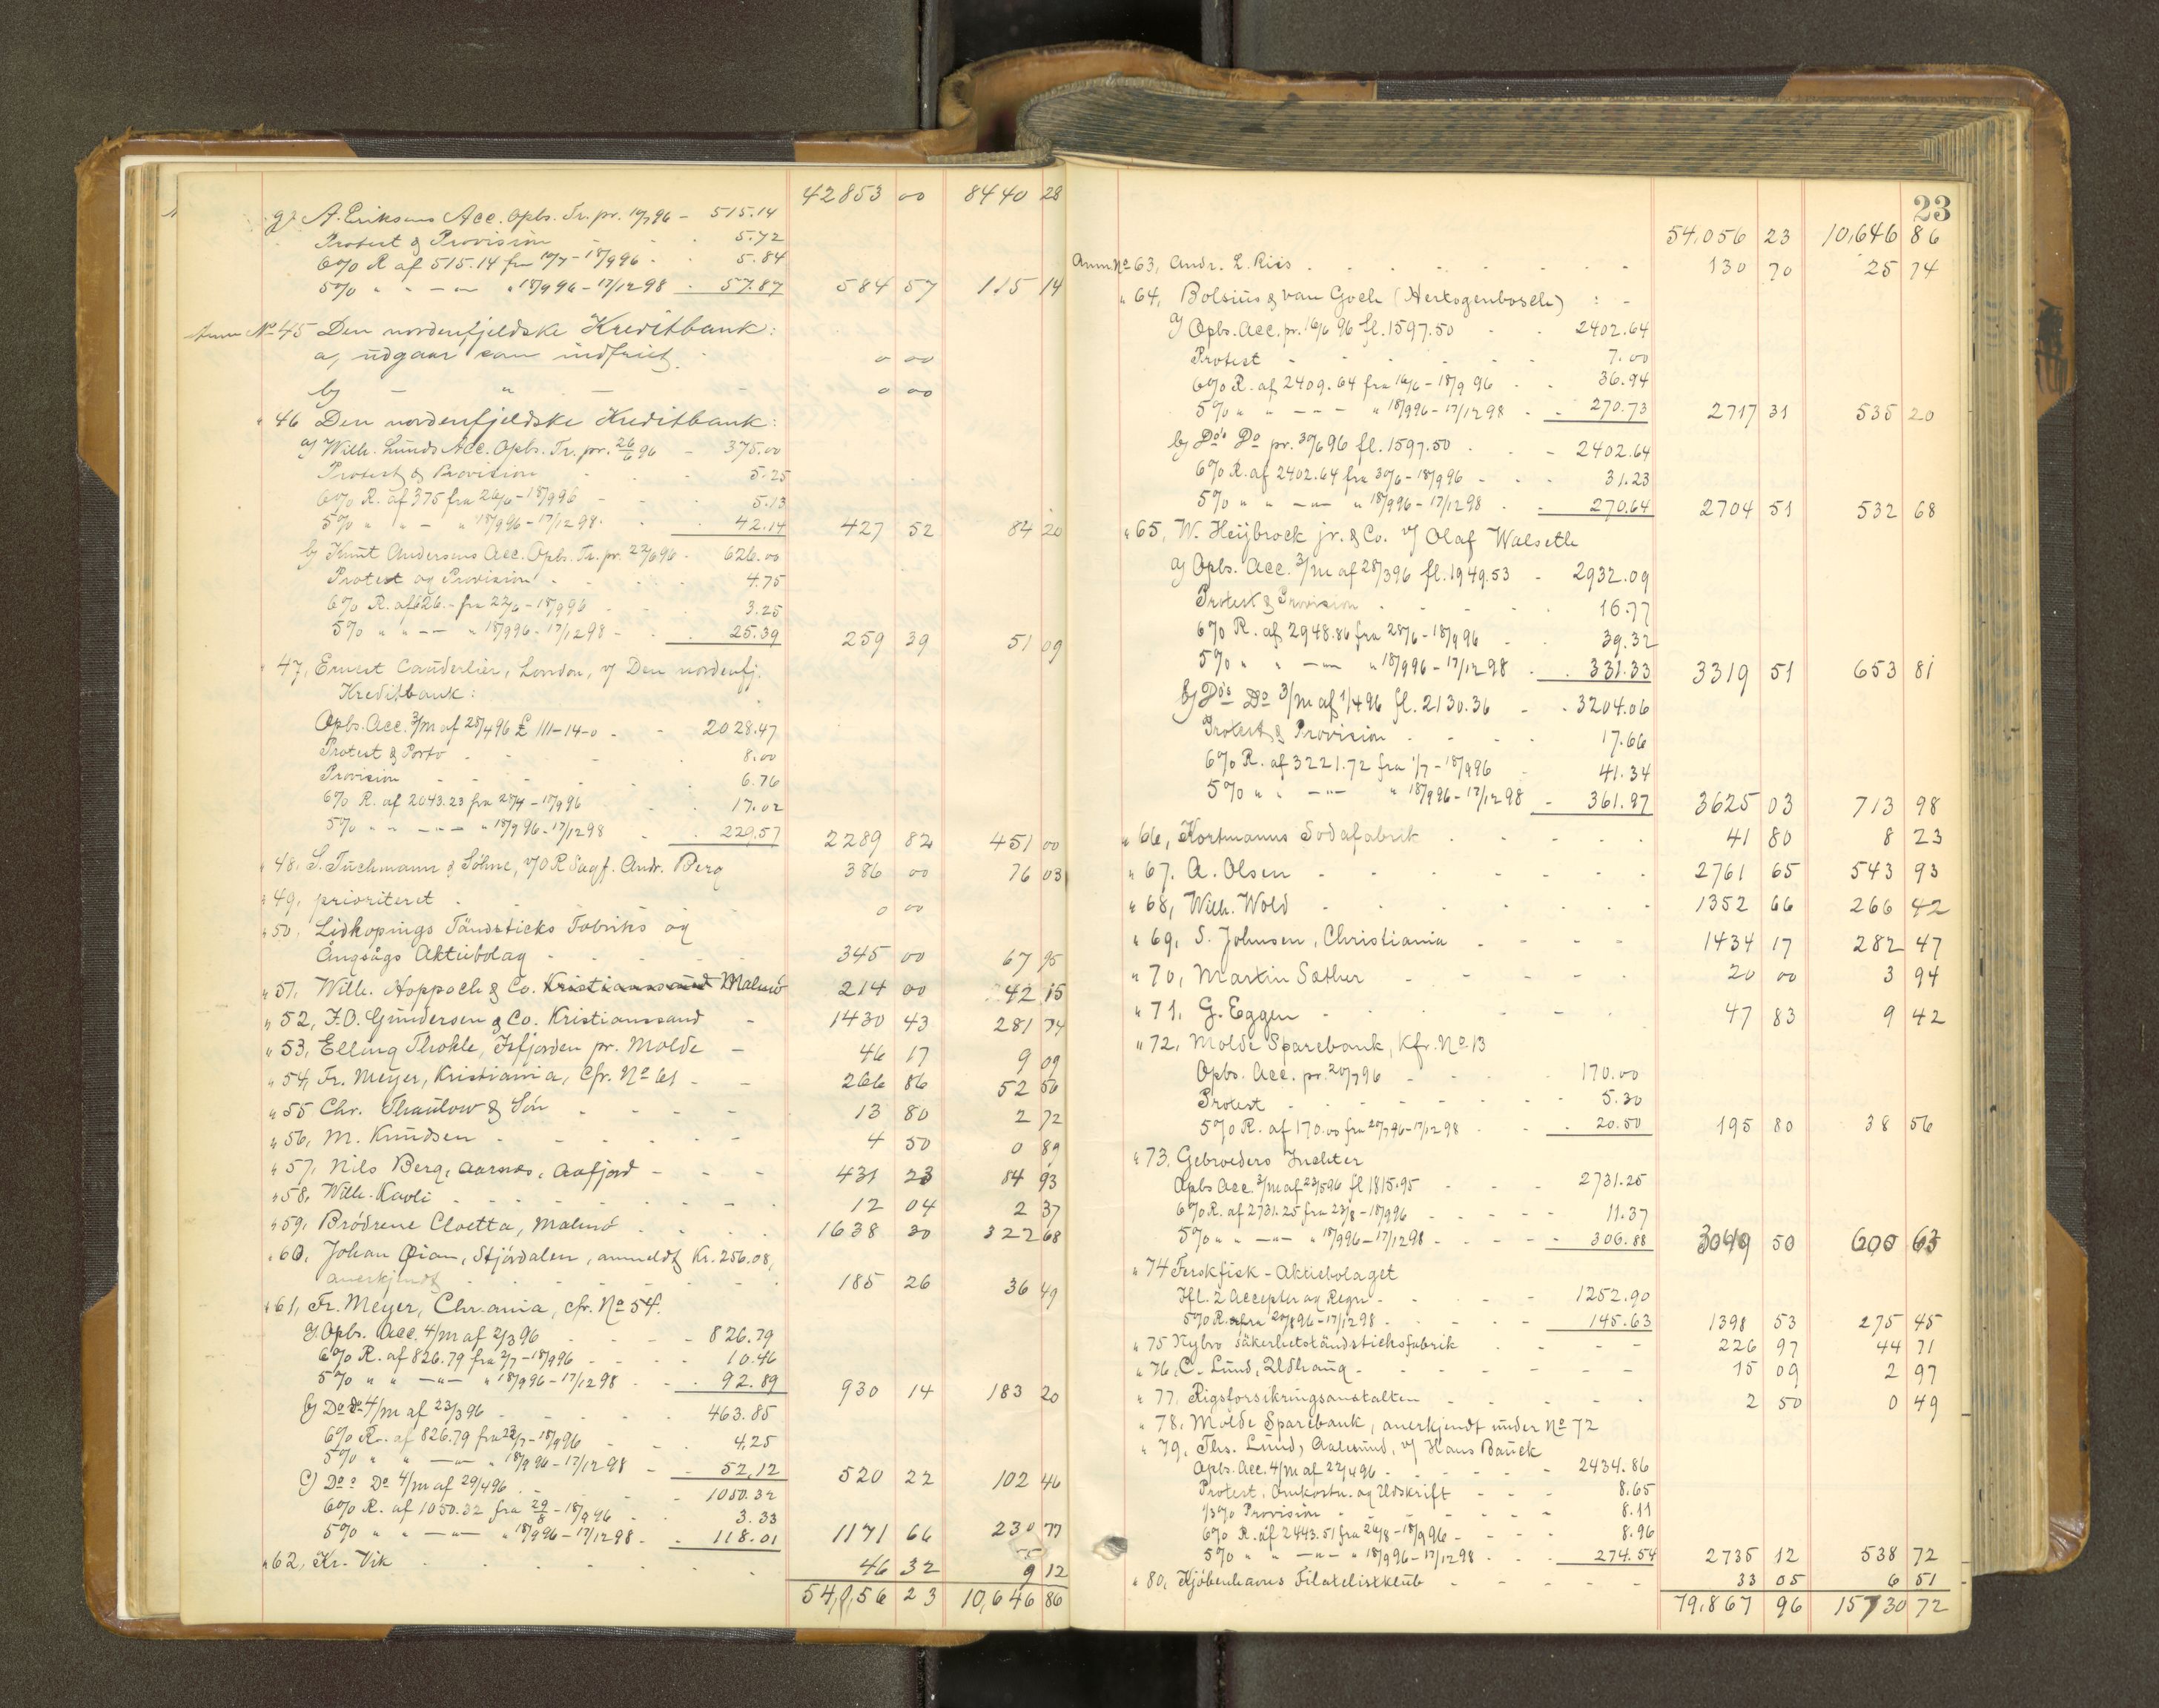 42853 00 8440 28
g) A. Eriksens Acc. Opbs. Tr. pr. 10/7 96 - 515.14
Protest & Provision - - - 5.72
6% R af 515.14 fra 10/7 - 18/9 96 - - 5.84
5% " " — " — " 18/9 96 - 17/12 98 - 57.87 584 57 115 14
Anm No 45 Den nordenfjeldske Kreditbank:
a, udgaar som indfriet - 0 00
b) — " — 0 00
" 46 Den nordenfjeldske Kreditbank:
a) Wilh. Lunds Acc. Opbs. Tr. pr. 26/6 96 - 375.00
Protest & Provision - - - 5.25
6% R. af 375 fra 26/6 - 18/9 96 - - 5.13
5% " " — " 18/9 96 - 17/12 98 - - 42.14 427 52 84 20
b) Knut Andersens Acc. Opbs. Tr. pr. 22/6 96 - 626.00
Protest og Provision - - - 4.75
6% R. af 626.- fra 22/6 - 18/9 96 - - 3.25
5% " " — — " 18/9 96 - 17/12 98 - - 25.39 259 39 51 09
" 47, Ernest Cauderlier, London, v/ Den nordenfj.
Kreditbank:
Opbs. Acc. 3/m af 28/4 96 £ 111-14-0 - - 2028.47
Protest & Porto - - - 8.00
Provision - - - - 6.76
6% R. af 2043.23 fra 28/7 - 18/9 96 - - 17.02
5% " " — " — " 18/9 96 - 17/12 98 - - 229.57 2289 82 451 00
" 48, S. Tuchmann & Söhne, v/ O R Sagf. Andr. Berg 386 00 76 03
" 49, prioriteret - - - 0 00
" 50, Lidkopings Tändsticks Fabriks og
Ångsågs Aktiebolag - - - 345 00 67 95
" 51, Wilh. Hoppoch & Co. Kristianssund Malmö 214 00 42 15
" 52, F. O. Gundersen & Co. Kristianssand - 1430 43 281 74
" 53, Elling Thokle, Isfjorden pr. Molde - 46 17 9 09
" 54, Fr. Meyer, Kristiania, Cfr. No 61 - - 266 86 52 56
" 55 Chr. Thaulow & Søn - - - - 13 80 2 72
" 56, M. Knudsen - - - - - 4 50 0 89
" 57, Nils Berg, Aarnes, Aafjord - - - 431 23 84 93
" 58, Wilh. Kavli - - - - - 12 04 2 37
" 59, Brödrene Cloetta, Malmö - - - 1638 30 322 68
" 60, Johan Øian, Stjørdalen, anmeldt Kr. 256.08,
anerkjendt - - - - - 185 26 36 49
" 61, Fr. Meyer, Chr.ania, cfr. No 54.
a) Opbs. Acc. 4/m af 2/3 96 - - - 826.79
6% R. af 826.79 fra 2/7 - 18/9 96 - - - 10.46
5% " " — " — " 18/9 96 - 17/12 98 - - 92.89 930 14 183 20
b) Do do 4/m af 23/3 96 - - - 463.85
6% R. af 826.79 fra 23/7 - 18/9 96 - - - 4.25
5% " " — " — " 18/9 96 - 17/12 98 - - 52.12 520 22 102 46
c) Do Do 4/m af 29/4 96 - - - 1050.32
6% R. af 1050.32 fra 29/8 - 18/9 96 - - 3.33
5% " " — " — " 18/9 96 - 17/12 98 - - 118.01 1171 66 230 77
" 62, Kr. Vik - - - - - 46 32 9 12
54,056 23 10,646 86
23
54,056 23 10,646 86
Anm. No 63, Andr. L. Riis - - - - - 130 70 25 74
" 64, Bolsius & van Goch (Hertogenbosch) : -
a) Opbs. Acc. pr. 16/6 96 fl. 1597.50 - - 2402.64
Protest - - - - - 7.00
6% R. af 2409.64 fra 16/6 - 18/9 96 - - 36.94
5% " " — " — " 18/9 96 - 17/12 98 - - 270.73 2717 31 535 20
b) Do's Do pr. 30/6 96 fl. 1597.50 - - - 2402.64
6% R. af 2402.64 fra 30/6 - 18/9 96 - - - 31.23
5% " " — " — " 18/9 96 - 17/12 98 - - 270.64 2704 51 532 68
" 65, W. Heijbrock jr. & Co. v/ Olaf Walseth
a) Opbs. Acc. 3/m af 28/3 96 fl. 1949.53 - 2932.09
Protest & Provision - - - - 16.77
6% R. af 2948.86 fra 28/6 - 18/9 96 - - 39.32
5% " " — " — " 18/9 96 - 17/12 98 - - 331.33 3319 51 653 81
b) Do's Do 3/m af 1/4 96 fl. 2130.36 - - 3204.06
Protest & Provision - - - - 17.66
6% R. af 3221.72 fra 1/7 - 18/9 96 - 41.34
5% " " — " — " 18/9 96 - 17/12 98 - 361.97 3625 03 713 98
" 66, Kortmanns Sodafabrik - - - - 41 80 8 23
" 67, A. Olsen - - - - - - 2761 65 543 93
" 68, Wilh. Wold - - - - - - 1352 66 266 42
" 69, S. Johnsen, Christiania - - - - 1434 17 282 47
" 70, Martin Sæther - - - - - 20 00 3 94
" 71, G. Eggen - - - - - - 47 83 9 42
" 72, Molde Sparebank, Kfr. No 13
Opbs. Acc. pr. 20/7 96 - - - - 170.00
Protest - - - - - - 5.30
5% R. af 170.00 fra 20/7 96 - 17/12 98 - - - 20.50 195 80 38 56
" 73, Gebroeders Juchter
Opbs Acc. 3/m af 23/5 96 fl 1815.95 - - - 2731.25
6% R. af 2731.25 fra 23/8 - 18/9 96 - - - - 11.37
5% " " — " — " 18/9 96 - 17/12 98 - - - - 306.88 3049 50 600 63
" 74 Ferskfisk - Aktiebolaget
Ifl. 2 Accepter og Regn - - - - 1252.90
5% R. fra 20/8 96 - 17/12 98 - - - - 145.63 1398 53 275 45
" 75 Nybro Säkerhetständsticksfabrik - - - - 226 97 44 71
" 76, C. Lund, Udhaug - - - - - - 15 09 2 97
" 77, Rigsforsikringsanstalten - - - - - 2 50 0 49
" 78, Molde Sparebank, anerkjendt under No 72
" 79, Ths. Lund, Aalesund, v/ Hans Bauck
Opbs. Acc. 4/m af 22/4 96 - - - - - 2434.86
Protest, Omkostn. og Udskrift - - - 8.65
1/3% Provision - - - - - 8.11
6% R. af 2443.51 fra 26/8 - 18/9 96 - - - - 8.96
5% " " — " — " 18/9 96 - 17/12 98 - - - 274.54 2735 12 538 72
" 80, Kjøbenhavns Filatelistklub - - - - - 33 05 6 51
79,867 96 15730 72